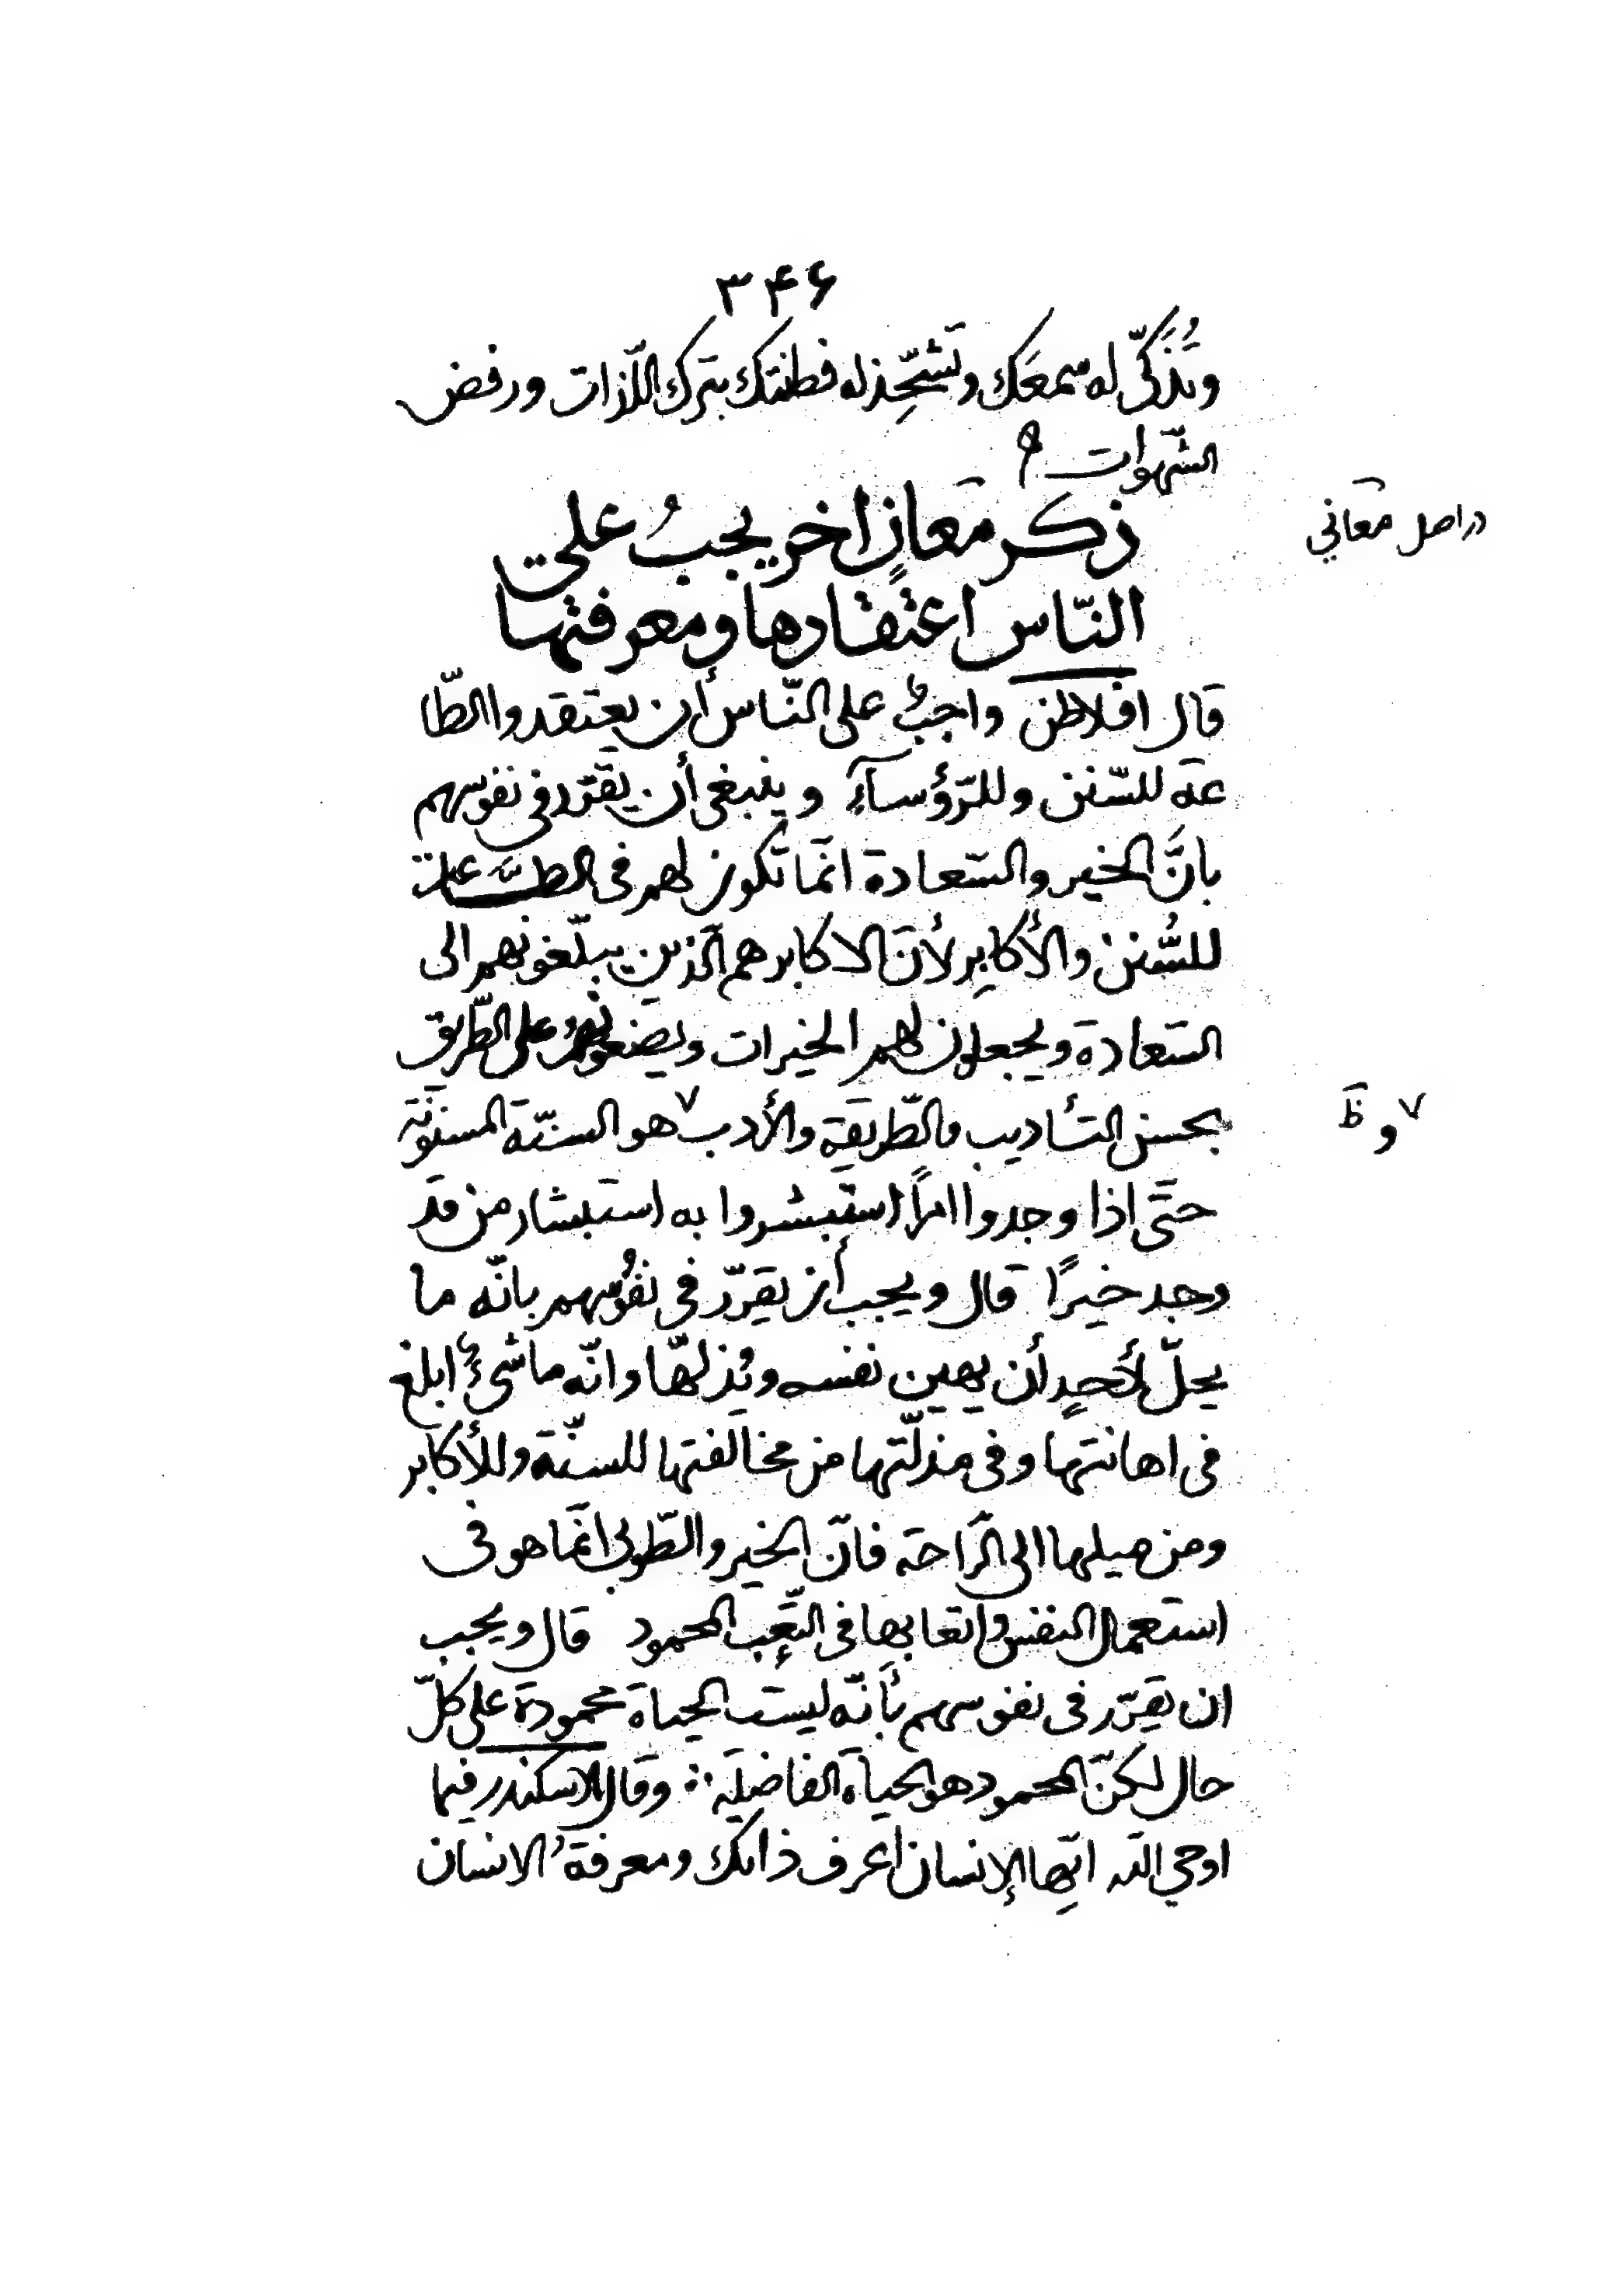 ۳۴۶
وتُذَكّى له سمعَك وتَشحّذ له فطنتك بترك اللّذات ورفض
الشّهوات
ذكر مَعانٍ اخر يجبُ على
دراصل معاني
النّاس اعتقادها ومعرفتها
قال افلاطن واجبٌ على النّاس أن يعتقدوا الطّا
عة للسّنن وللرّؤسآءِ وينبغى أن يقرّر فى نفوسهم
بانَّ الخير والسّعادة انّما تكون لهم فى الطّاعة
للسُّنن والأكابِر لأنّ الاكابر هم الّذين يبلّغونهم الى
السّعادة ويجعلون لهم الخيرات ويضعونهم على الطّريق
بحسن التّأديب والطّريقة والأدب ٧ هو السنّة المسنونة
٧ و ظ
حتّى اذا وجدوا امرًا استبشروا به استبشار من قد
وجد خيرًا قال ويجب أن يقرّر فى نفُوسهم بانّه ما
يحلّ لأحدٍ أن يهين نفسه ويُذلّها وانّه ما شىءٌ ابلغ
فى اهانتها وفى مذلّتها من مخالفتها للسنّة وللأكابر
ومن ميلها الى الرّاحة فانّ الخير والطّوبى انّما هو فى
استعمال النفس واتعابها فى التّعب المحمود قال ويجب
ان يقرّر فى نفوسهم بأنّه ليست الحياة محمودة على كلّ
حال لكنّ المحمود هو الحياة الفاضلة ∴ وقال للاسكندر فيما
اوحي اللّه ايّها الإنسان اعرف ذاتك ومعرفةُ الانسان